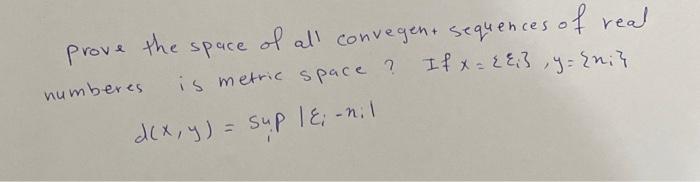 prove the space of all convegent sequences of real
numberes is metric space ? If x = {ξi} , y = {ηi}
d(x,y) = sup |ξi - ηi|
i